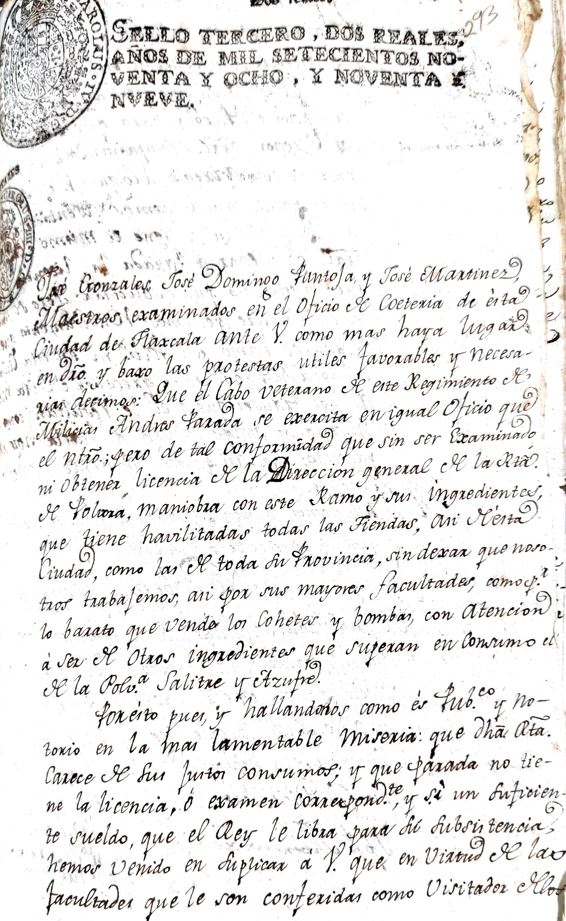 293
SELLO TERCERO, DOS REALES,
AÑOS DE MIL SETECIENTOS NO-
VENTA Y OCHO, Y NOVENTA Y
NUEVE.
José Gonzales, José Domingo Pantoja, y José Martinez,
Maestros examinados en el Oficio de Coeteria de ésta
Ciudad de Tlaxcala ante V. como mas haya lugar
en dro, y baxo las protestas utiles favorables y necesa-
rias decimos: Que el Cabo veterano de este Regimiento de
Milicias Andres Parada se exercita en igual Oficio que
el ntro.; pero de tal conformidad que sin ser Examinado
ni obtener licencia de la Direccion general de la Rta.
de Polvora, maniobra con este Ramo y sus ingredientes,
que tiene havilitadas todas las Tiendas, asi de ésta
Ciudad, como las de toda su Provincia, sin dexar que noso-
tros trabajemos, asi por sus mayores facultades, como pr.
lo barato que vende los Cohetes y bombas, con atencion
á ser de otros ingredientes que superan en consumo el
de la Polva. Salitre y Azufre.
Por esto pues, y hallandonos como és Pubco. y no-
torio en la mas lamentable Miseria: que dha. Rta.
carece de sus justos consumos; y que Parada no tie-
ne la licencia, ó examen correspondte., y sí un suficien-
te sueldo, que el Rey le libra para su subsistencia,
hemos venido en suplicar á V. que en virtud de las
facultades que le son conferidas como Visitador de